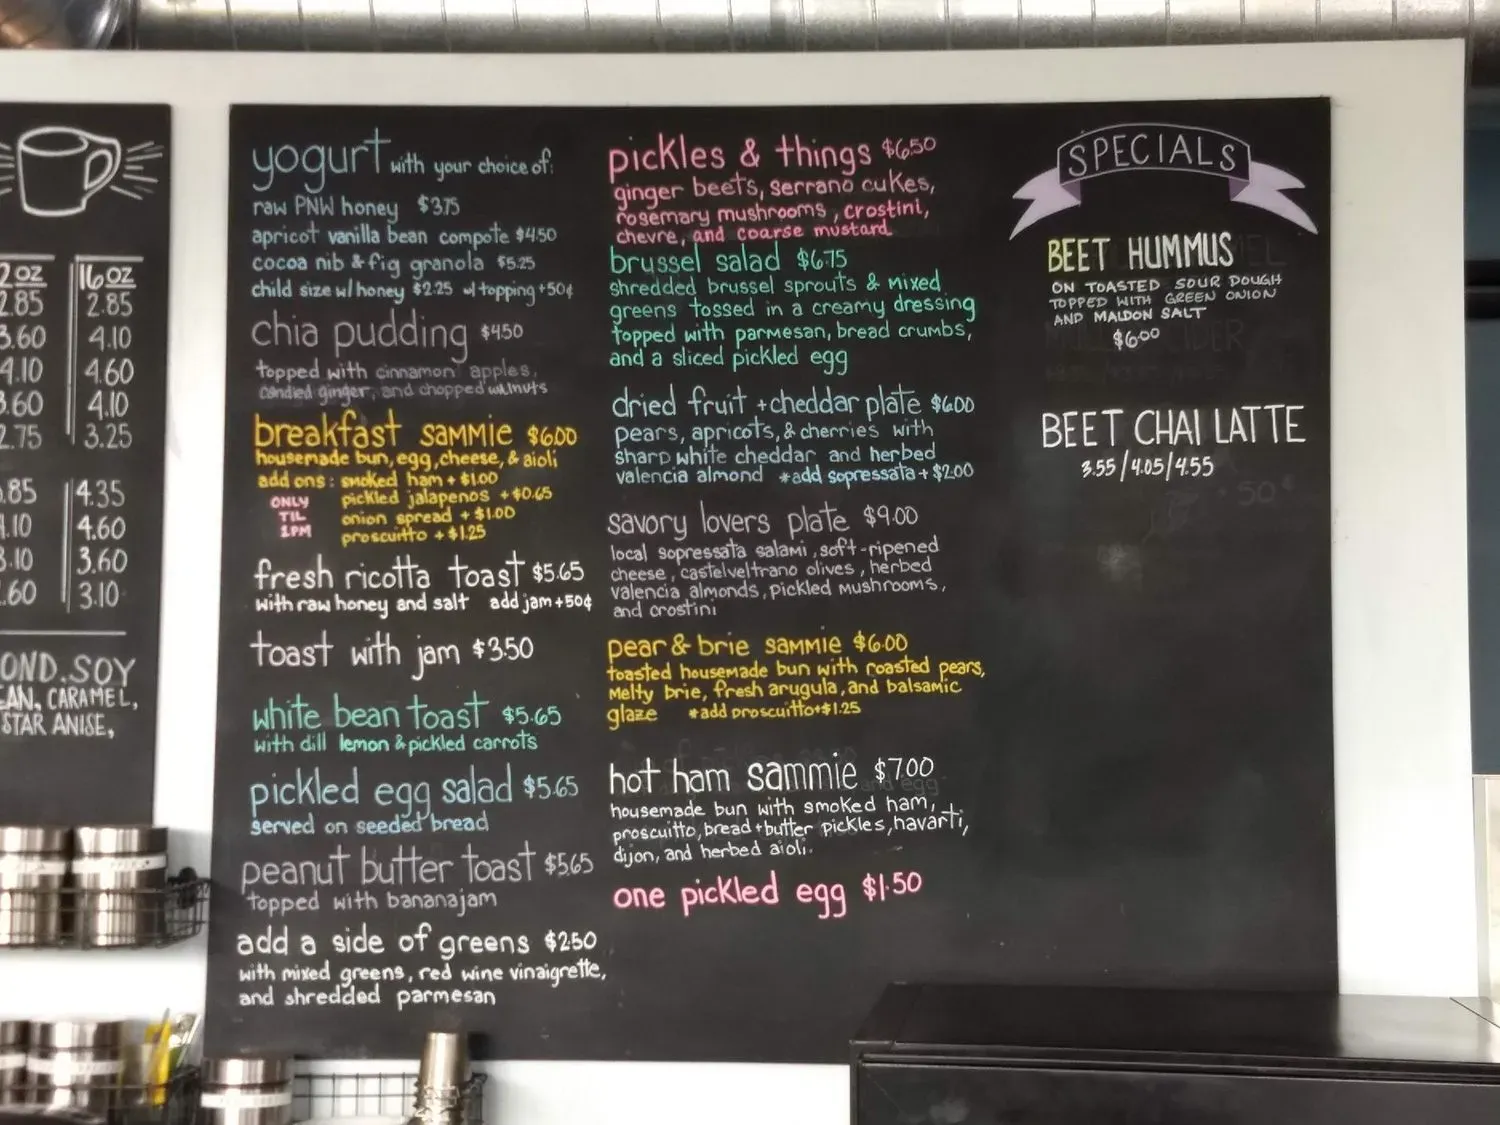 2 OZ 16 OZ
2.85 2.85
3.60 4.10
4.10 4.60
3.60 4.10
2.75 3.25
.85 4.35
4.10 4.60
3.10 3.60
.60 3.10
OND. SOY
EAN, CARAMEL,
STAR ANISE,
yogurt with your choice of:
raw PNW honey $3.75
apricot vanilla bean compote $4.50
cocoa nib & fig granola $5.25
child size w/ honey $2.25 w/ topping +50¢
chia pudding $4.50
topped with cinnamon apples,
candied ginger, and chopped walnuts
breakfast sammie $6.00
housemade bun, egg, cheese, & aioli
add ons: smoked ham + $1.00
ONLY TIL 2PM
pickled jalapenos + $0.65
onion spread + $1.00
proscuitto + $1.25
fresh ricotta toast $5.65
with raw honey and salt add jam +50¢
toast with jam $3.50
white bean toast $5.65
with dill lemon & pickled carrots
pickled egg salad $5.65
served on seeded bread
peanut butter toast $5.65
topped with bananajam
add a side of greens $2.50
with mixed greens, red wine vinaigrette,
and shredded parmesan
pickles & things $6.50
ginger beets, serrano cukes,
rosemary mushrooms, crostini,
chevre, and coarse mustard
brussel salad $6.75
shredded brussel sprouts & mixed
greens tossed in a creamy dressing
topped with parmesan, bread crumbs,
and a sliced pickled egg
dried fruit + cheddar plate $6.00
pears, apricots, & cherries with
sharp white cheddar and herbed
valencia almond *add sopressata + $2.00
savory lovers plate $9.00
local sopressata salami, soft-ripened
cheese, castelveltrano olives, herbed
valencia almonds, pickled mushrooms,
and crostini
pear & brie sammie $6.00
toasted housemade bun with roasted pears,
melty brie, fresh arugula, and balsamic
glaze *add proscuitto +$1.25
hot ham sammie $7.00
housemade bun with smoked ham,
proscuitto, bread + butter pickles, havarti,
dijon, and herbed aioli.
one pickled egg $1.50
SPECIALS
BEET HUMMUS
ON TOASTED SOUR DOUGH
TOPPED WITH GREEN ONION
AND MALDON SALT
$6.00
BEET CHAI LATTE
3.55/4.05/4.55